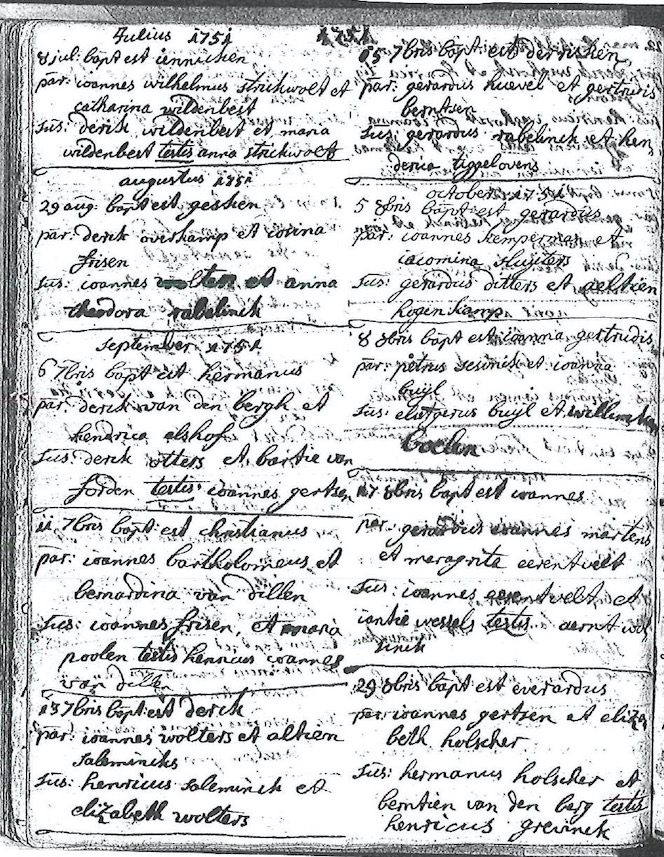 Julius 1751
8 jul: bapt est ennichen
par: ioannes wilhelmus strickwolt et
catharina wildenbeit
sus: derick wildenbeit et maria
wildenbeit testis anna strickwolt
augustus 1751
29 aug: bapt est gesken
par: derick overkamp et
frisen
sus: ioannes wolters et anna
theodora rabelinck
september 1751
6 7bris bapt est hermanus
par: derick van den bergh et
hendrica elshof
sus: derick otters et bartie von
forden testis ioannes gertsen
11 7bris bapt est christianus
par: ioannes bartholomeus et
bernardina van dillen
sus: ioannes frisen, et maria
poolen testis henricus ioannes
van dillen
13 7bris bapt est derick
par: ioannes wolters et altien
saleminks
sus: henricus saleminck et
elizabeth wolters
1751
15 7bris bapt est derrisken
par: gerardus huevel et gertrudis
berntsen
sus: gerardus rabelinck et hen
derica tiggelovens
october: 1751
5 8bris bapt est gerardus
par: ioannes kemperman et
iacomina sluyters
sus: gerardus ditters et aeltien
hogenkamp
8 8bris bapt est ioanna gertrudis
par: petrus sesinck et ioanna
buyl
sus: eutgerus buyl et willemken
boelen
17 8bris bapt est ioannes
par: gerardus ioannes martens
et maragrita eerentvelt
sus: ioannes eerentvelt et
iantie wessels testis aernt wol
sinck
29 8bris bapt est everardus
par: ioannes gertsen et eliza
beth holscher
sus: hermanus holscher et
berntien van den berg testis
henricus grevinck